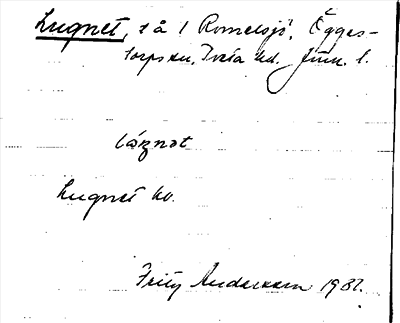 Lugnet, t å 1 Romelsjö, Egges-
torps sn, Tveta hd. Jönk. l.
lɷŋnət
Lugnet ko.
Fritz Andersson 1932.